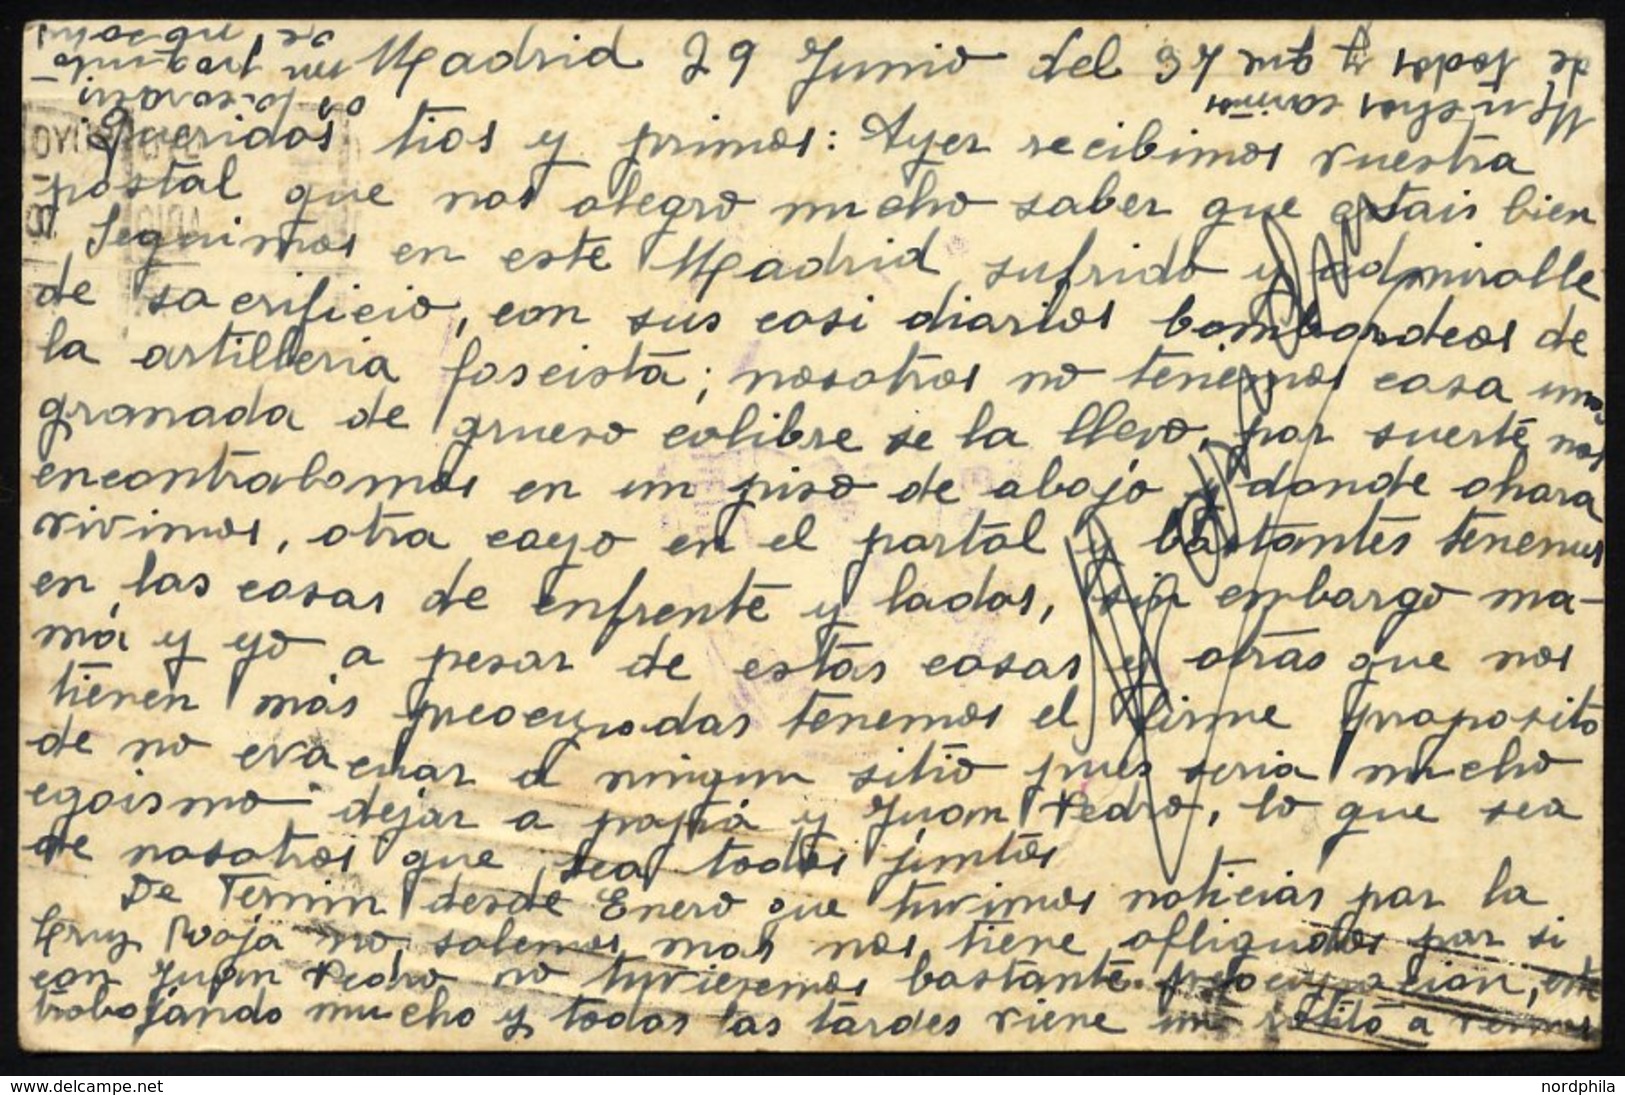 Madrid 29 Junio del 37
Queridos tios y primos: Ayer recibimos vuestra
postal que nos alegro mucho saber que estais bien
Seguimos en este Madrid sufrido y admiralle
de sacrificio, con sus casi diarios bombardeos de
la artilleria fascista; nosotros no tenemos casa una
granada de grueso calibre se la llevo, por suerte nos
encontrabamos en un piso de abajo y donde ahara
vivimos, otra cayo en el partal y bastantes tenemos
en las casas de enfrente y lados, sin embargo ma-
má y yo a pesar de estas casas y otras que nos
tienen más preocupadas tenemos el firme proposito
de no evacuar a ningun sitio pues seria mucho
egoismo dejar a papá y Juan Pedro, lo que sea
de nosotros que sea todos juntos
De Termin desde Enero que tuvimos noticias por la
Cruz Roja no sabemos mas nos tiene afligudos por si
con Juan Pedro no tuvieremos bastante preocupacion, este
trabajando mucho y todas las tardes viene un ratito a vernos
de todos y que
Muchos cariños
nordphila - www.delcampe.net